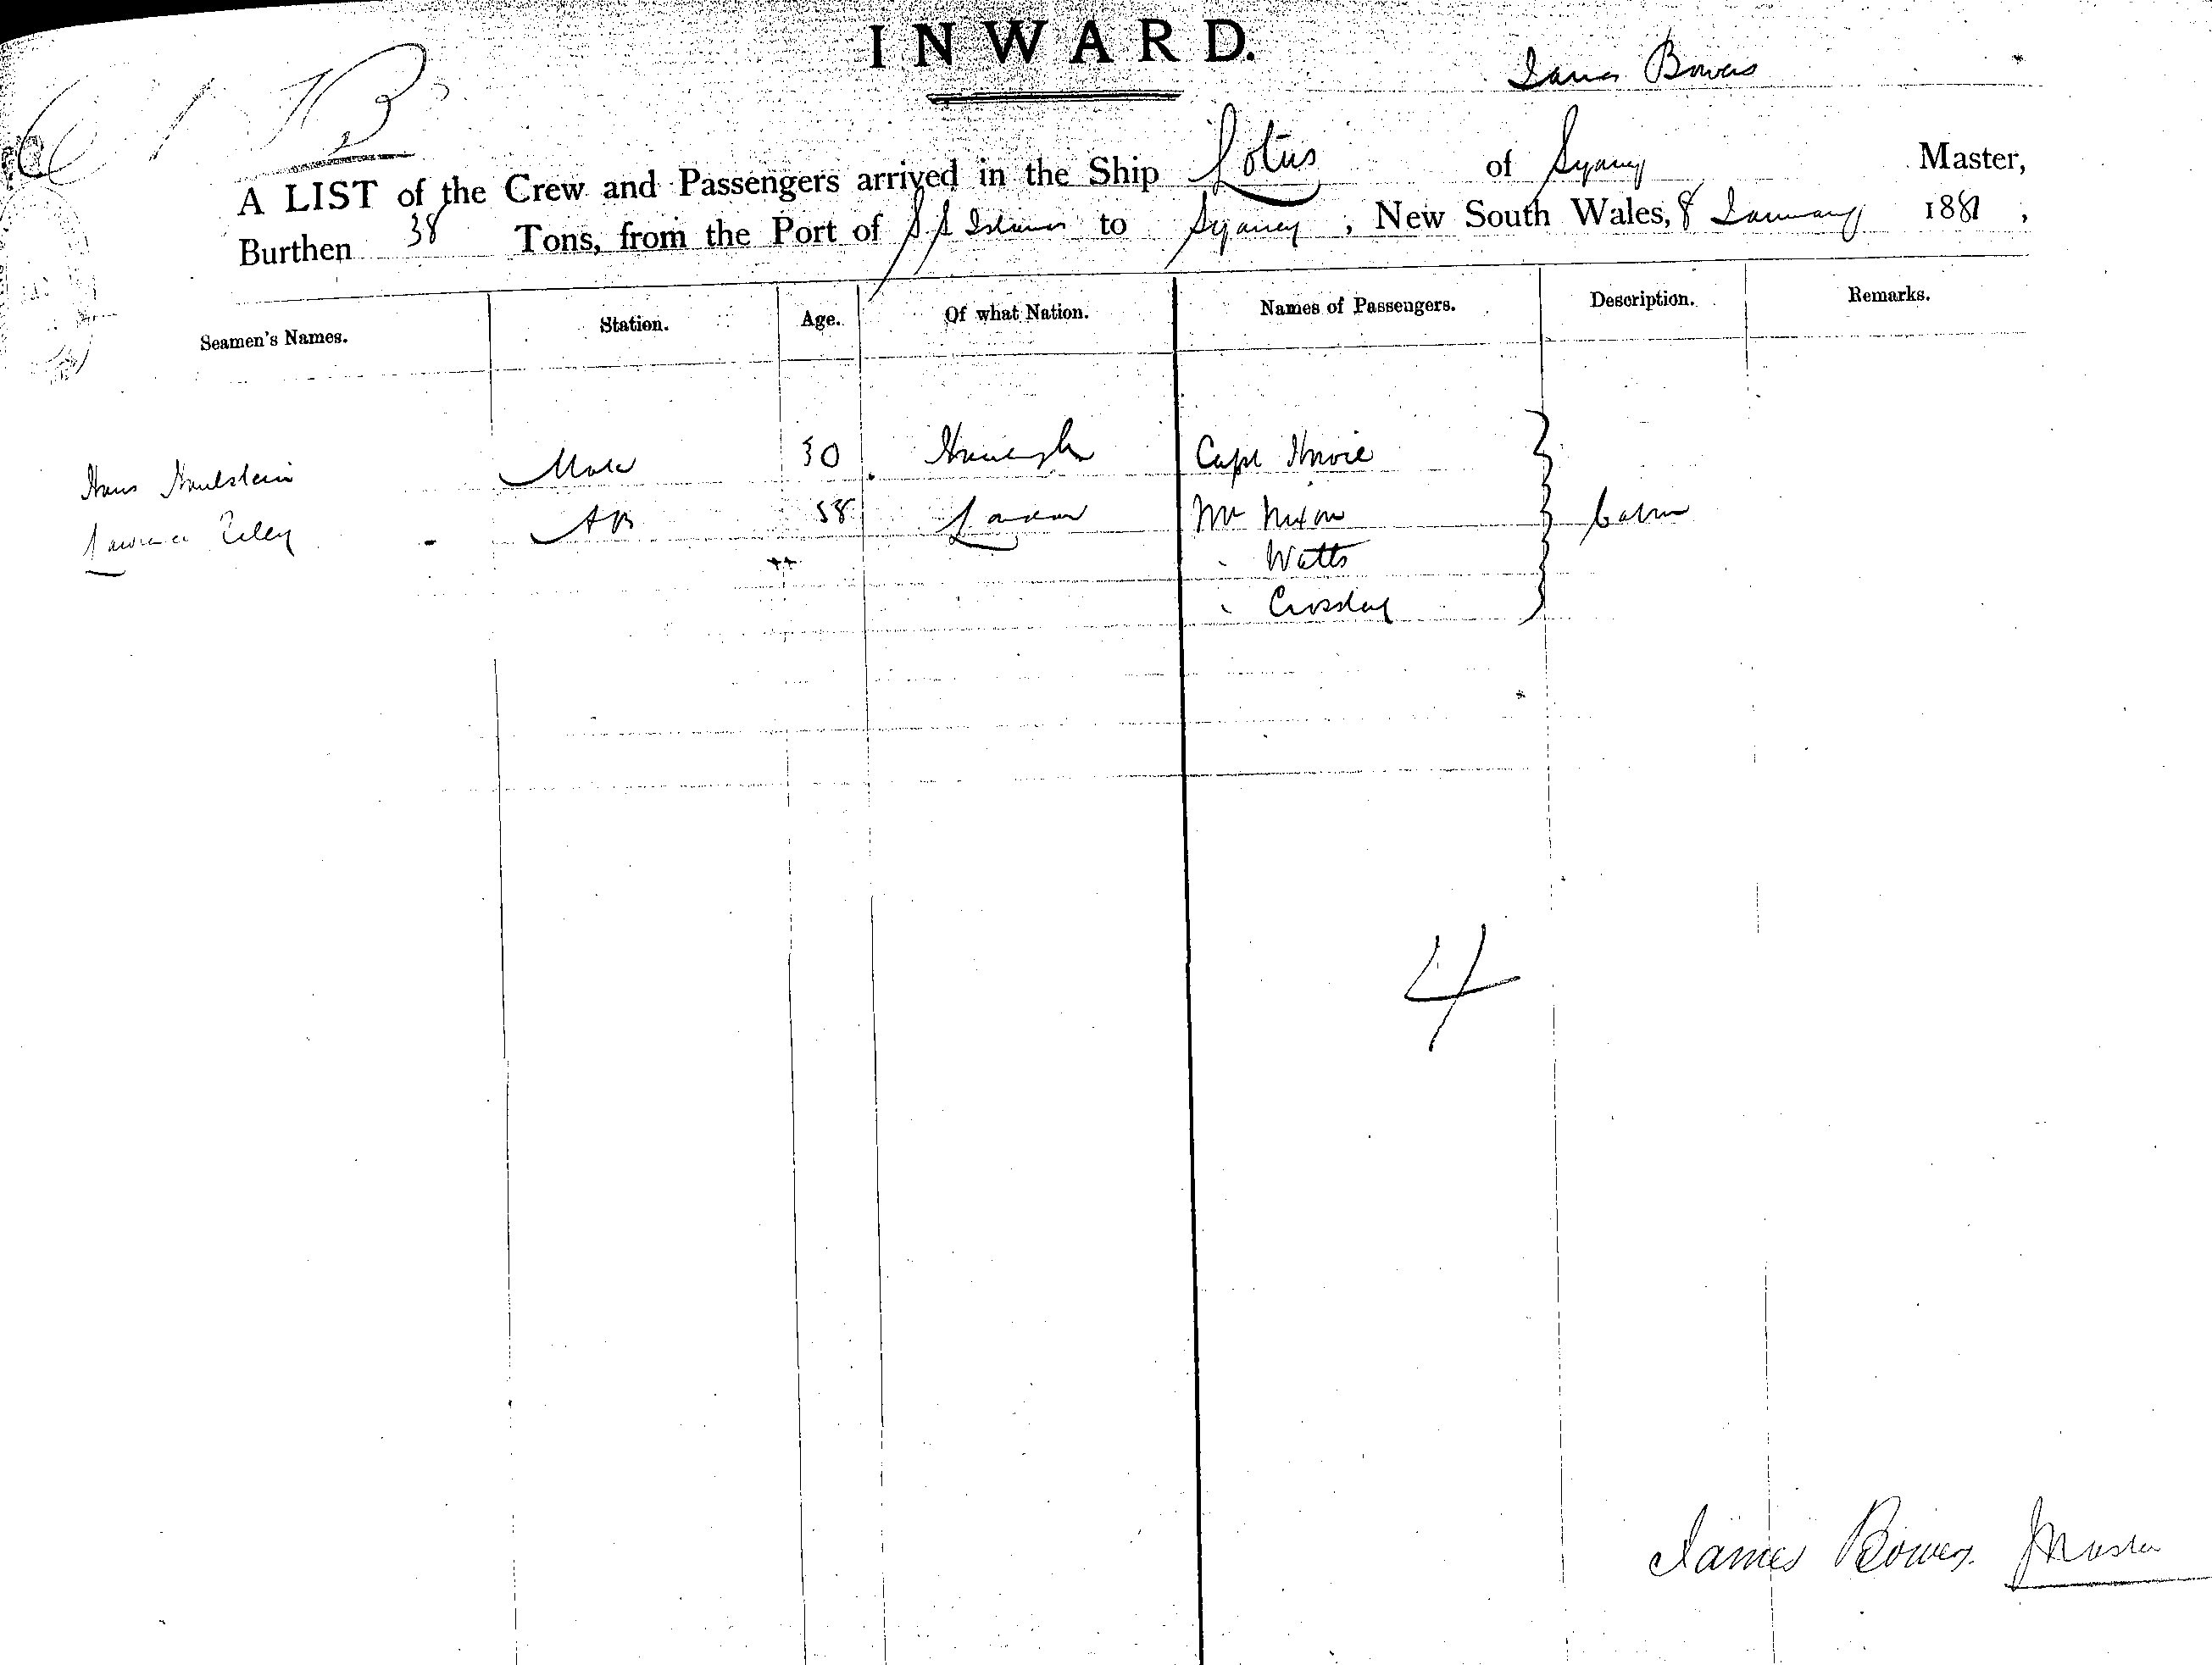 INWARD.
James Bowers
A LIST of the Crew and Passengers arrived in the Ship Lotus of Sydney Master,
Burthen 38 Tons, from the Port of S. S. Islands to Sydney, New South Wales, 8 January 1881,
Seamen's Names. Station. Age. Of what Nation. Names of Passengers. Description. Remarks.
Hans Mate 30 Capt Howie
Lawrence Riley AB 58 London Mr Nixon Cabin
" Watts
" Crossley
4
James Bowers Master